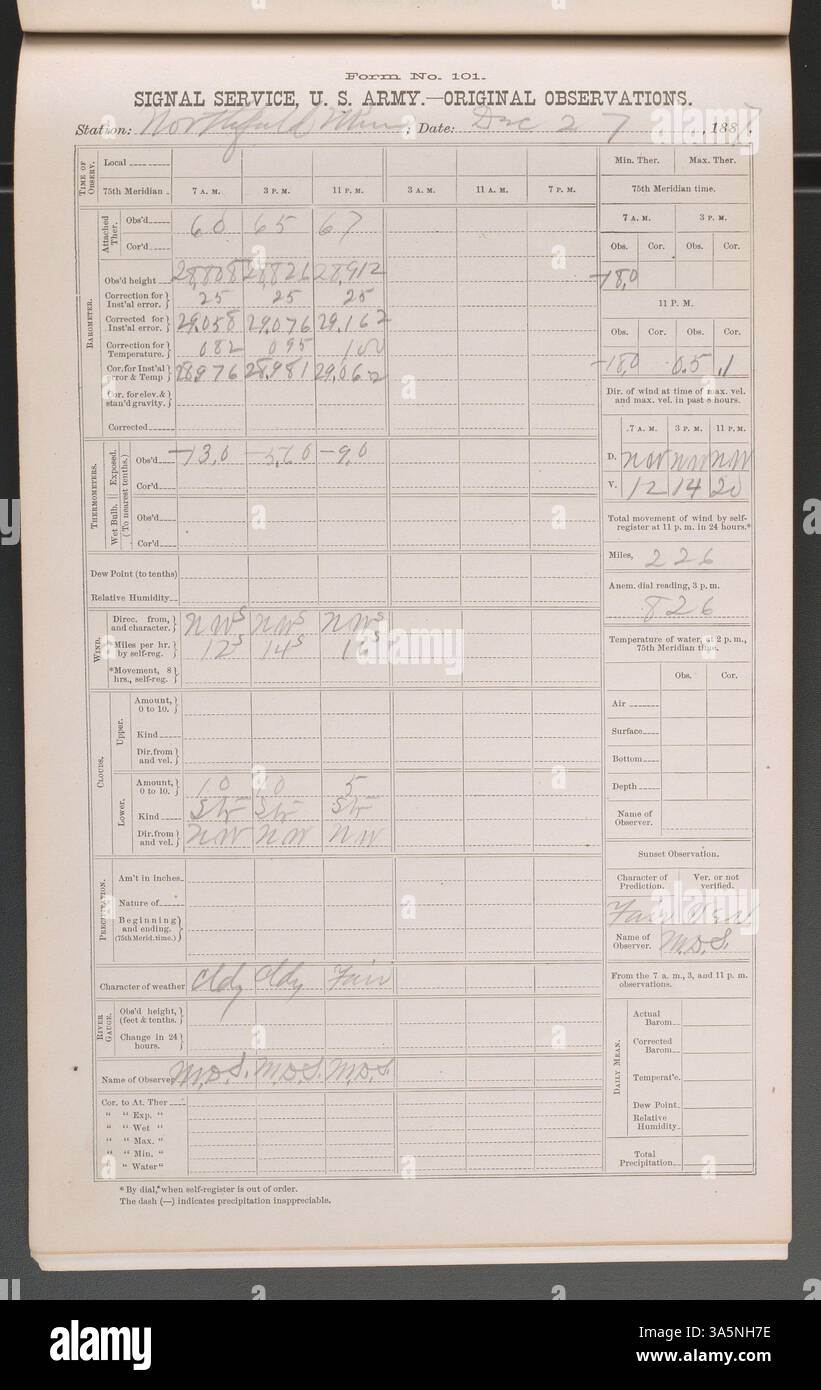 Form No. 101.
SIGNAL SERVICE, U. S. ARMY.—ORIGINAL OBSERVATIONS.
Station: Northfield Minn; Date: Dec 27, 1887.
TIME OF OBSERV.
Local
75th Meridian 7 A. M. 3 P. M. 11 P. M. 3 A. M. 11 A. M. 7 P. M.
BAROMETER.
Attached Ther.
Obs'd 60 65 67
Cor'd
Obs'd height 28,808 28,826 28,912
Correction for Inst'al error. 25 25 25
Corrected for Inst'al error. 29.058 29,076 29,162
Correction for Temperature. 082 095 100
Cor. for Inst'al error & Temp 28,976 28,981 29,062
Cor. for elev. & stan'd gravity.
Corrected
THERMOMETERS.
(To nearest tenths.)
Exposed.
Obs'd -13,0 -5,60 -9,0
Cor'd
Wet Bulb.
Obs'd
Cor'd
Dew Point (to tenths)
Relative Humidity
WIND.
Direc. from, and character. NWS NWS NWS
*Miles per hr. by self-reg. 12S 14S
*Movement, 8 hrs., self-reg.
CLOUDS.
Upper.
Amount, 0 to 10.
Kind
Dir. from and vel.
Lower.
Amount, 0 to 10. 10 10 5
Kind Str Str Str
Dir. from and vel. NW NW NW
PRECIPITATION.
Am't in inches
Nature of
Beginning and ending. (75th Merid. time.)
Character of weather Cldy Cldy Fair
RIVER GAUGE.
Obs'd height, (feet & tenths.)
Change in 24 hours.
Name of Observer M.D.S. M.D.S. M.D.S.
Cor. to At. Ther
" " Exp. "
" " Wet "
" " Max. "
" " Min. "
" Water "
* By dial, when self-register is out of order.
The dash (—) indicates precipitation inappreciable.
Min. Ther. Max. Ther.
75th Meridian time.
7 A. M. 3 P. M.
Obs. Cor. Obs. Cor.
-18,0
11 P. M.
Obs. Cor. Obs. Cor.
-18,0 0.5 .1
Dir. of wind at time of max. vel. and max. vel. in past 8 hours.
7 A. M. 3 P. M. 11 P. M.
D. NW NW NW
V. 12 14 20
Total movement of wind by self-register at 11 p. m. in 24 hours.*
Miles, 226
Anem. dial reading, 3 p.m.
826
Temperature of water, at 2 p. m., 75th Meridian time.
Obs. Cor.
Air
Surface
Bottom
Depth
Name of Observer.
Sunset Observation.
Character of Prediction. Ver. or not verified.
Fair Ver
Name of Observer. M.D.S.
From the 7 a. m., 3, and 11 p. m. observations.
DAILY MEAN.
Actual Barom
Corrected Barom
Temperat'e.
Dew Point
Relative Humidity
Total Precipitation.
alamy
a
alamy
Image ID: 3A5NH7E
www.alamy.com